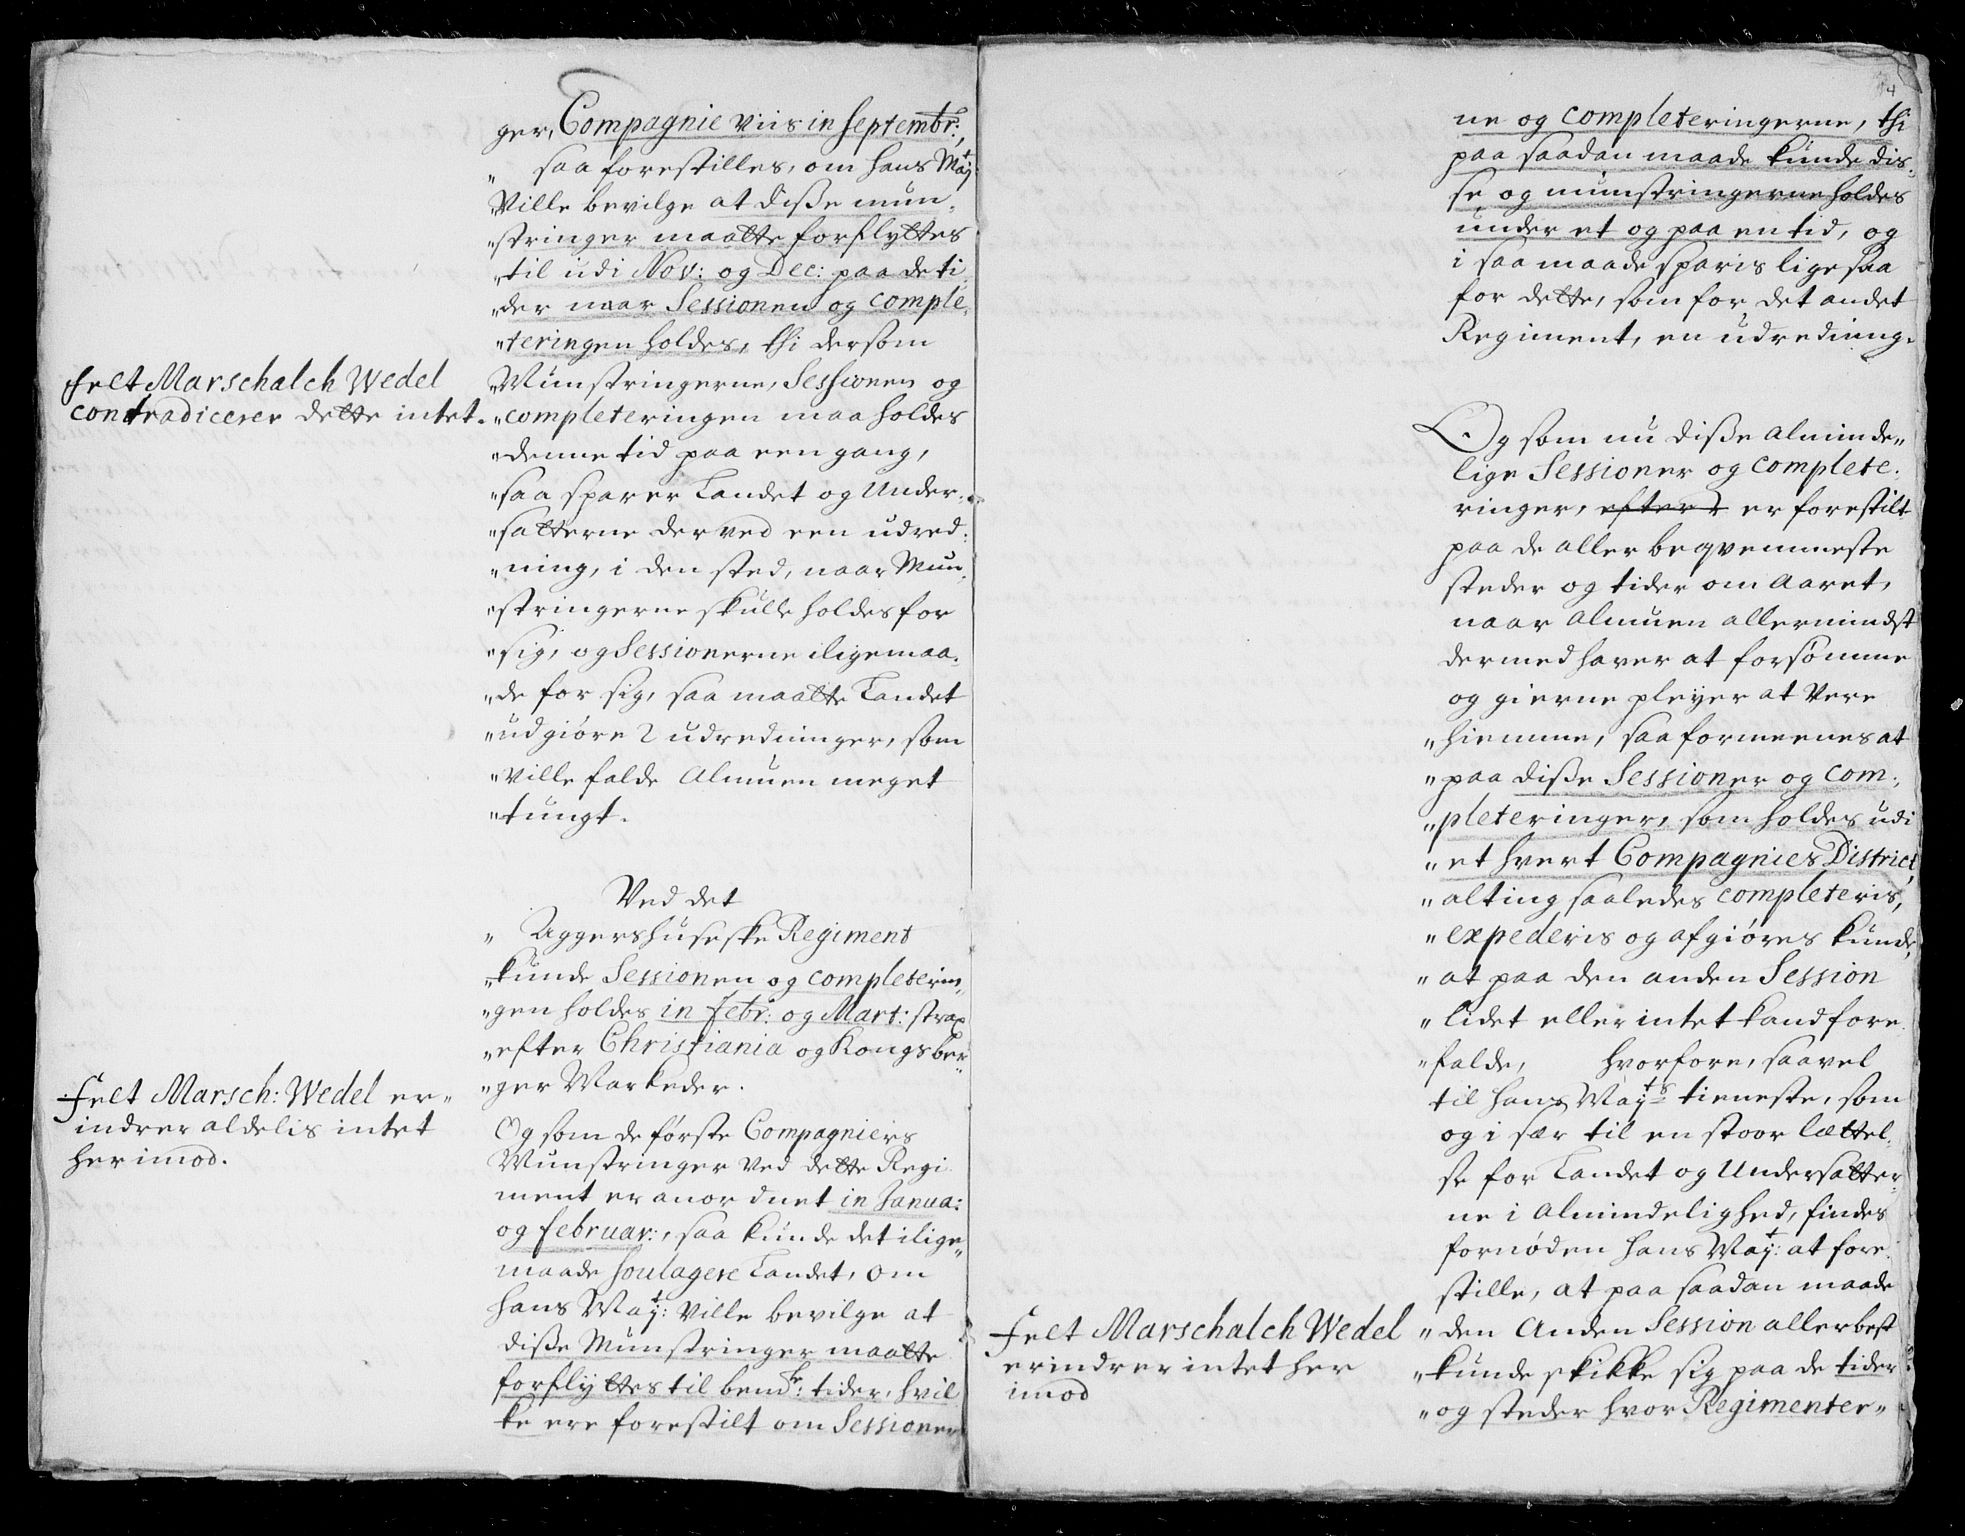 ger, Compagnie viis in Septembr:,
" saa forestilles, om hans Maÿt:
"Ville bevilge at diße mun-
"stringer maatte forflyttes
"til udi Nov: og Dec: paa de ti
"der naar Sessionen og comple-
"teringen holdes, thi dersom
"Munstringerne, Sessionen og
"completeringen maa holdes
"denne tid paa een gang,
"saa sparer Landet og Under-
"satterne derved een udred-
"ning, i den sted, naar Mun-
"stringerne skulle holdes for
"sig, og Sessionerne iligemaa-
"de for sig, saa maatte Landet
"udgiøre 2 udredninger, som
"ville falde Almuen meget
"tungt.
Felt Marschalch Wedel
contradicerer dette intet.
Ved det
" Aggershuseske Regiment
"kunde Sessionen og completerin-
"gen holdes in Febr: og Mart: strax
"efter Christiania og Kongsber-
"ger Markeder.
Og som de første Compagniers
Munstringer ved dette Regi
ment er anordnet in Janua:
og Februar:, saa kunde det ilige-
maade soulagere Landet, om
hans Maÿt: ville bevilge at
diße Munstringer maatte
forflyttes til bende: tider, hvil
ke ere forestilt om Sessioner
Felt Marsch: Wedel er-
indrer aldelis intet
herimod.
4
ne og completeringerne, thi
paa saadan maade kunde dis-
se og munstringerne holdes
under et og paa en tid, og
i saa maade sparis lige saa
for dette, som for det andet
Regiment, en udredning.
Og som nu diße Alminde-
lige Sessioner og complete-
ringer, efter er forestilt
paa de aller beqvemmeste
steder og tider om Aaret,
naar Almuen allermindst
dermed haver at forsømme
og gierne pleyer at Vere
"hiemme, saa formeenes at
"paa diße Sessioner og com-
"pleteringer, som holdes udi
"et hvert Compagnies District,
"alting saaledes completeris,
"expederis og afgiøres kunde,
"at paa den anden Session
"lidet eller intet kand fore
"falde, hvorfore, saavel
til hans Maÿts tieneste, som
og i sær til en stoor lættel-
se for Landet og Undersatter-
ne i Almindelighed, findes
fornøden hans Maÿt: at fore
stille, at paa saadan maade
"den Anden Session allerbest
"kunde skikke sig paa de tider
"og steder hvor Regimenter-
Felt Marschalch Wedel
erindrer intet her
imod